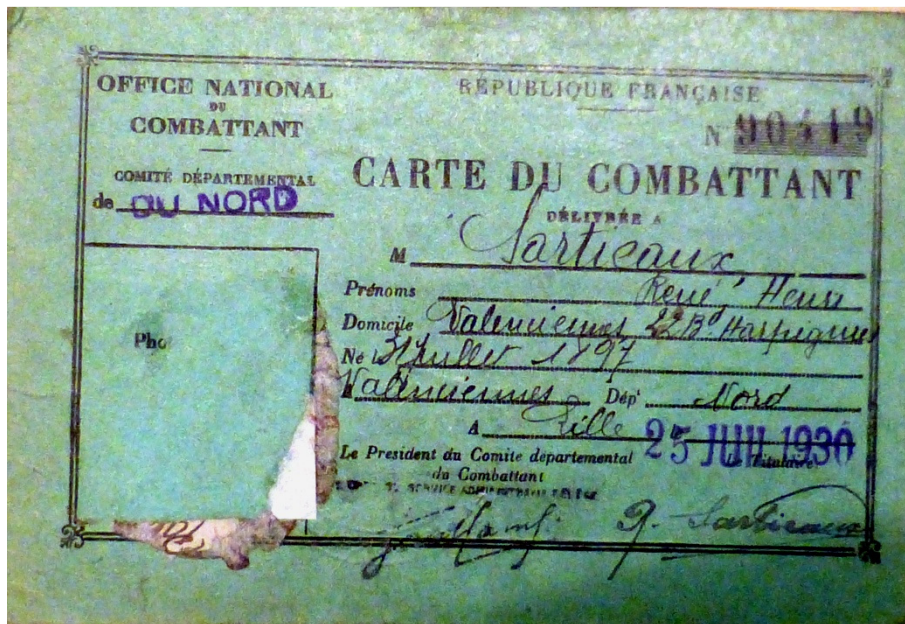 OFFICE NATIONAL
DU
COMBATTANT
COMITÉ DÉPARTEMENTAL
de DU NORD
Pho
RÉPUBLIQUE FRANÇAISE
N 90419
CARTE DU COMBATTANT
DÉLIVRÉE A
M Sarticaux
Prénoms René, Henri
Domicile Valenciennes 22 Bd Harpignies
Né le 31 Juillet 1897
Valenciennes Dépt Nord
A Lille 25 JUIL 1930
Le President du Comite departemental
du Combattant
Titulaire
SERVICE ADMINISTRATIF
R. Sarticaux